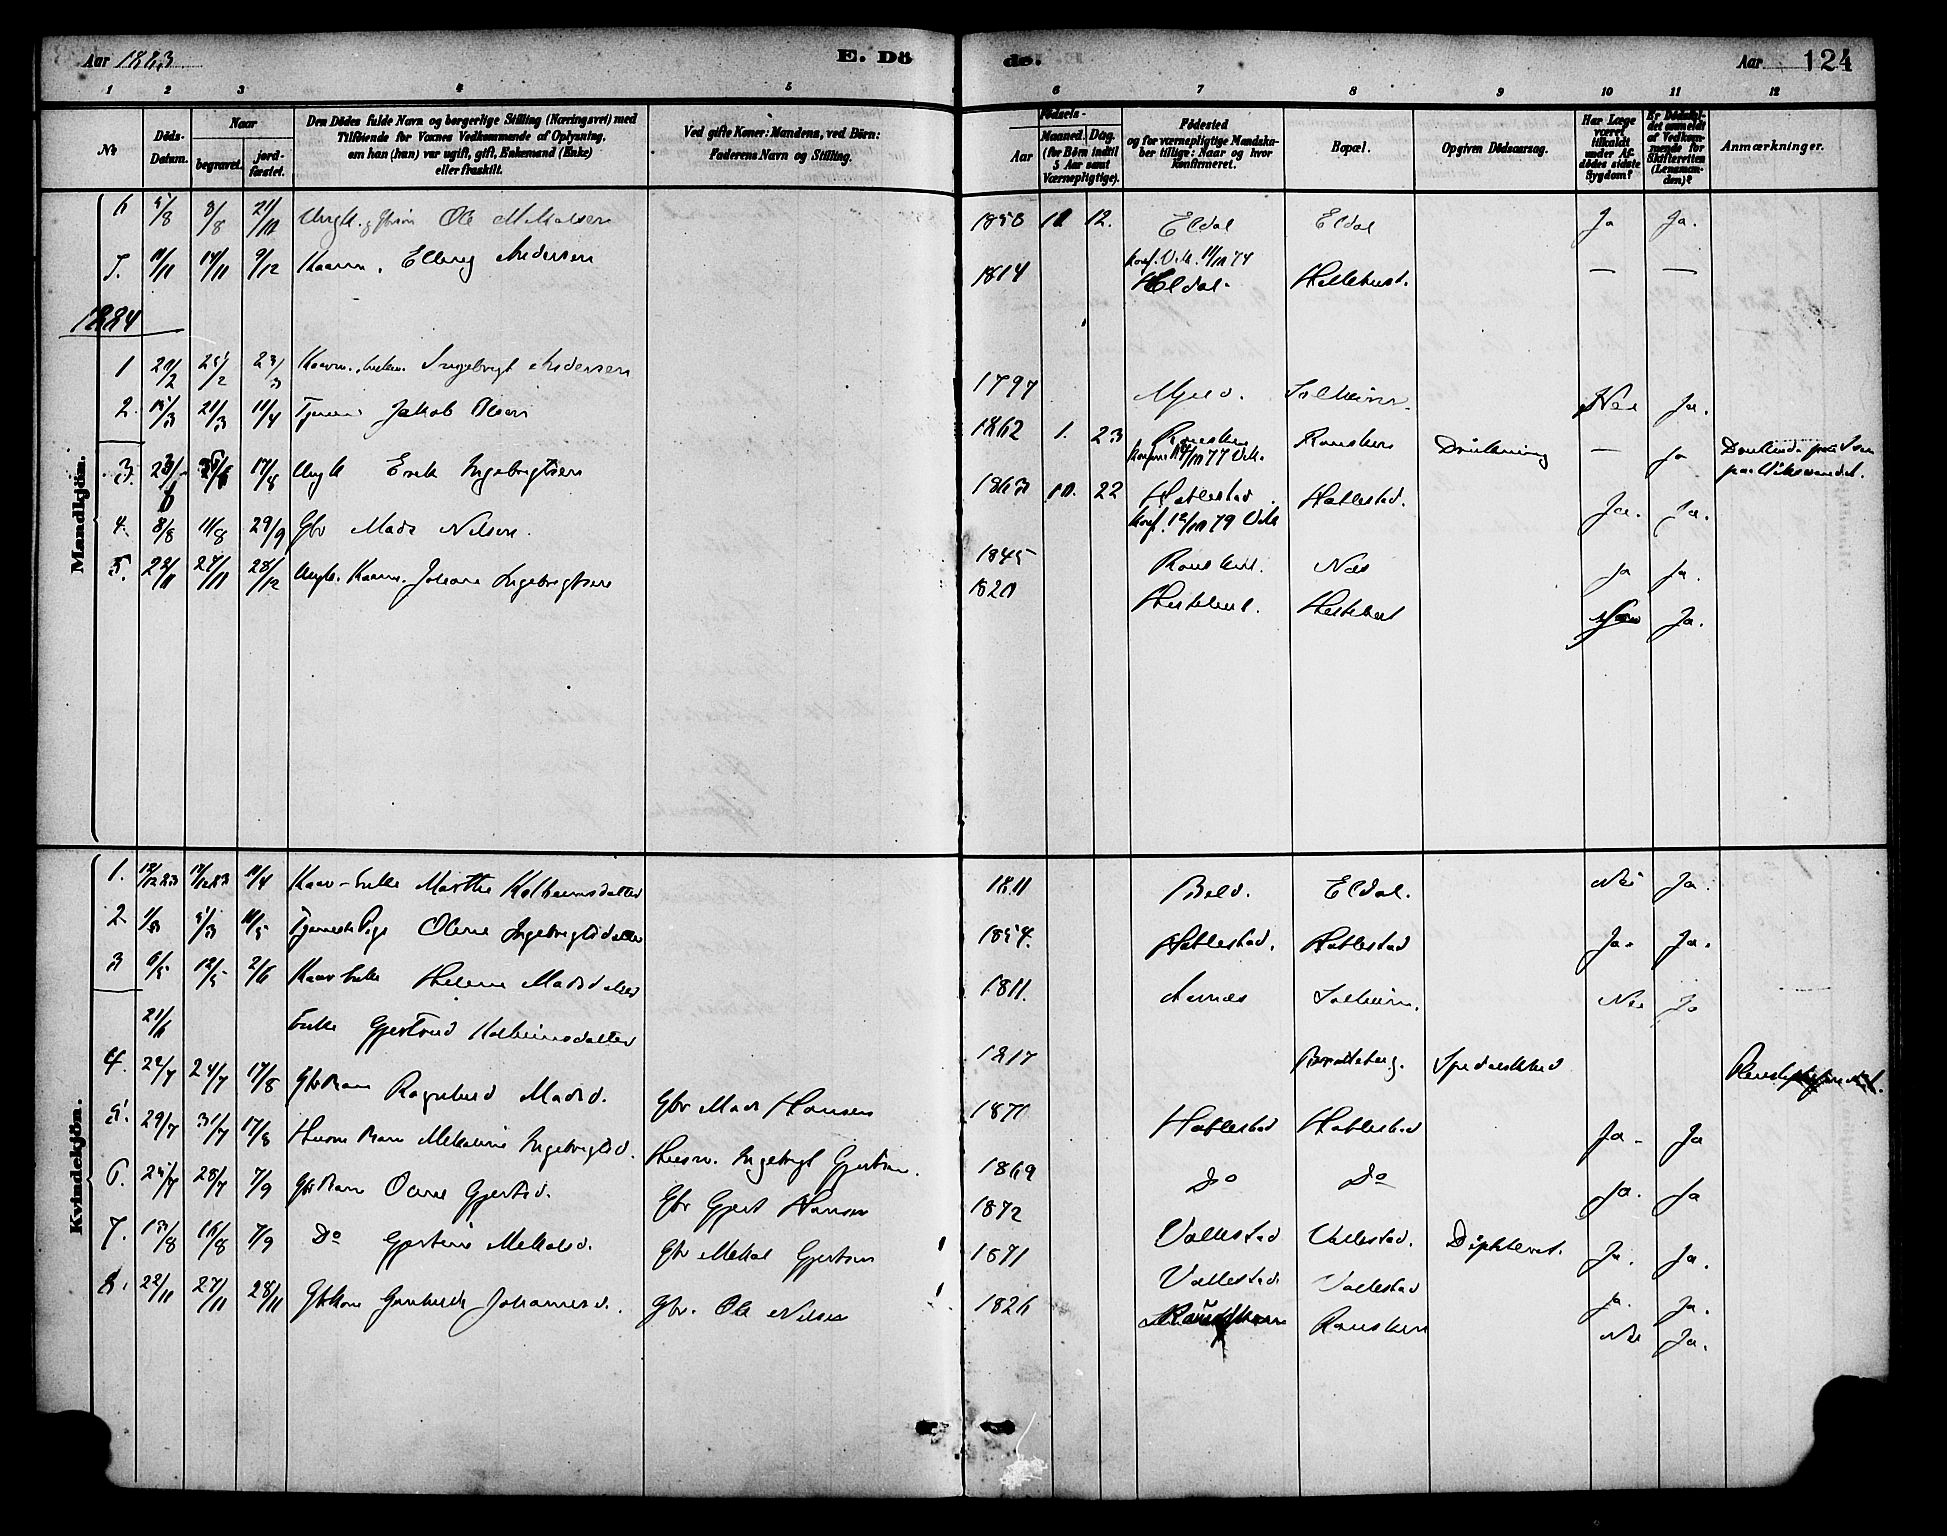 Aar 1883 E. Dö
de. Aar 124
1 2 3 4 5
6 7 8 9 10 11 12
№ Döds-Datum. Naar begravet. jord-fæstet. Den Dödes fulde Navn og borgerlige Stilling (Næringsvei) med Tilföiende for Voxnes Vedkommende af Oplysning, om han (hun) var ugift, gift, Enkemand (Enke) eller fraskilt. Ved gifte Koner: Mandens, ved Börn: Faderens Navn og Stilling.
Födsels- Aar Maaned. Dag. (for Börn indtil 5 Aar samt Værnepligtige). Födested og for værnepligtige Mandskaber tillige: Naar og hvor konfirmeret. Bopæl. Opgiven Dödsaarsag. Har Læge været tilkaldt under Afdödes sidste Sygdom? Er Dödsfaldet anmeldt af Vedkommende for Skifteretten (Lensmanden)? Anmærkninger.
Mandkjön.
6 5/8 8/8 21/10 Ungk. Ole Mikalsen 1858 11 12. Eldal Eldal Ja Ja.
Konf. Vik. 11/10 74
7. 10/11 14/11 9/12 Kaarm. Elling Andersen 1814 Eldal Hellehust. — —
1884
1 20/2 25/2 23/3 Kaarm. Enkem. Ingebrigt Andersen 1797 Mjeld. Solheim. Nei Ja.
2. 15/3 21/3 11/4 Tjener Jakob Olsen 1862 1. 23 Rouskin Rouskin Drukning — Ja
77 Vik.
3. 23/6 17/8 Ungk Erik Ingebrigtsen 1863 10. 22 Hatlestad Hatlestad. Ja. Ja.
Konf. 12/10 79 Vik
4. 8/8 11/8 29/9 Gbr Mads Nilsen. 1845 Rouskin. Næs Ja Ja.
5. 22/11 27/11 28/12 Ungk. Kaarm. Johans Ingebrigtsen 1820 Hestehust. Hestehust Ja.
Kvindekjön.
1. 12/12 83 17/12 83 11/4 Kaar-Enke Marthe Kolbeinsdatter 1811 Beld. Eldal. Nei Ja.
2. 1/3 5/3 11/5 Tjeneste Pige Oline Ingebrigtsdatter 1854. Hatlestad. Hatlestad Ja. Ja.
3 6/5 12/5 2/6 Kaar Enke Helene Madsdatter 1811. Aarnes Solheim. Nei Ja
21/6 Enke Gjertrud Kolbeinsdatter 1817 Spedalskhed
4. 22/7 24/7 17/8 Gbr Barn Ragnhild Madsd. Gbr Mads Hansen 1870 Hatlestad Hatlestad Ja. Ja
5. 29/7 31/7 17/8 Husm Barn Mikaline Ingebrigtsd. Husm. Ingebrigt Gjertsen. 1869 Do Do Ja. Ja
6. 25/7 28/7 7/9 Gbr Barn Oline Gjertsd. Gbr Gjert Hansen 1872 Vallestad Vallestad. Difterit. Ja. Ja.
7. 13/8 16/8 7/9 Do Gjertine Mikalsd. Gbr Mikal Gjertsen 1871 Vallestad Vallestad Ja. Ja.
8. 22/11 27/11 28/11 Gbrkone Gunhild Johannesd. Gbr. Ole Nilsen 1826 Rouskin Nei Ja.